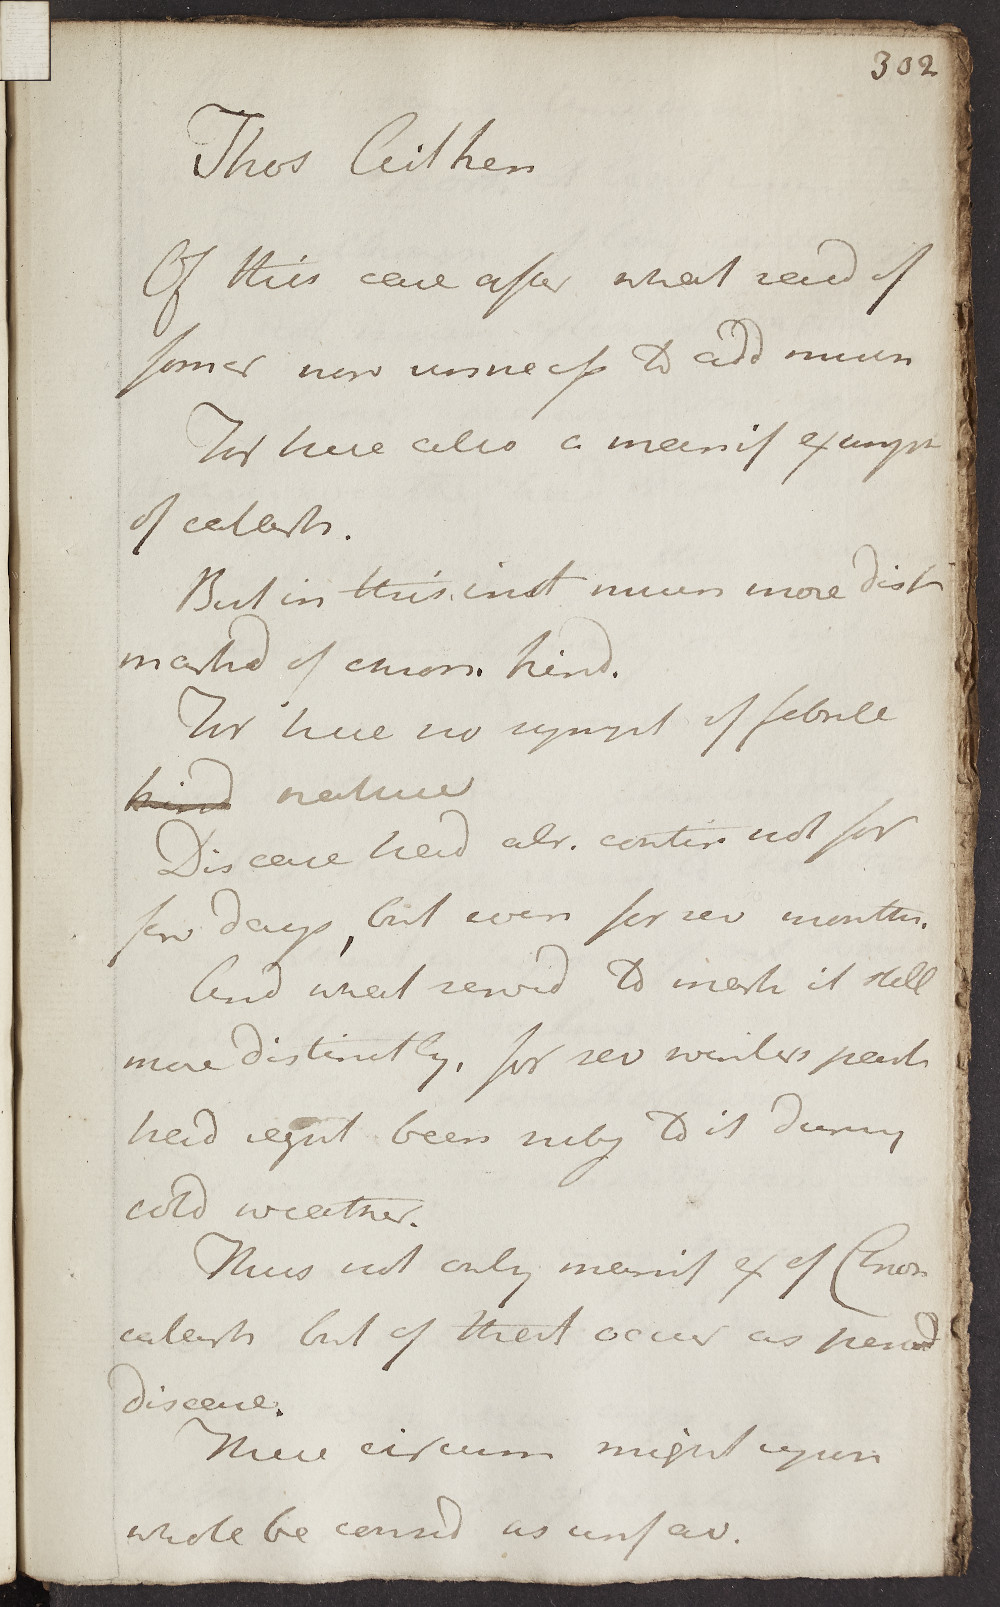 302
Thos Aitken
Of this case after what said of
former now unnecess to add much
For here also a manif exampl
of catarrh.
But in this inst much more dist
markd of chron. kind.
For here no sympt of febrile
kind nature
Disease had alr. contin not for
few days, but even for sev months.
And what servd to mark it still
more distinctly, for sev winters past
had regul been subj to it during
cold weather.
Thus not only manif ex of Chron
catarrh but of that occur as period
disease.
These circum might upon
whole be consid as unfav.